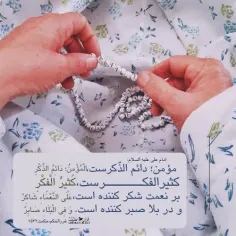 امام علی علیه السلام:
مؤمن؛ دائم الذکرست،المُؤمِنُ: دَائمُ الذِّکْرِ
کثیرالفکـــــــرست،کَثیرُ الفِکْرِ
بر نعمت شکر کننده است،عَلَی النَّعْماءِ شاکِرٌ
و در بلا صبر کننده است، و فِی البَلاءِ صابِرٌ